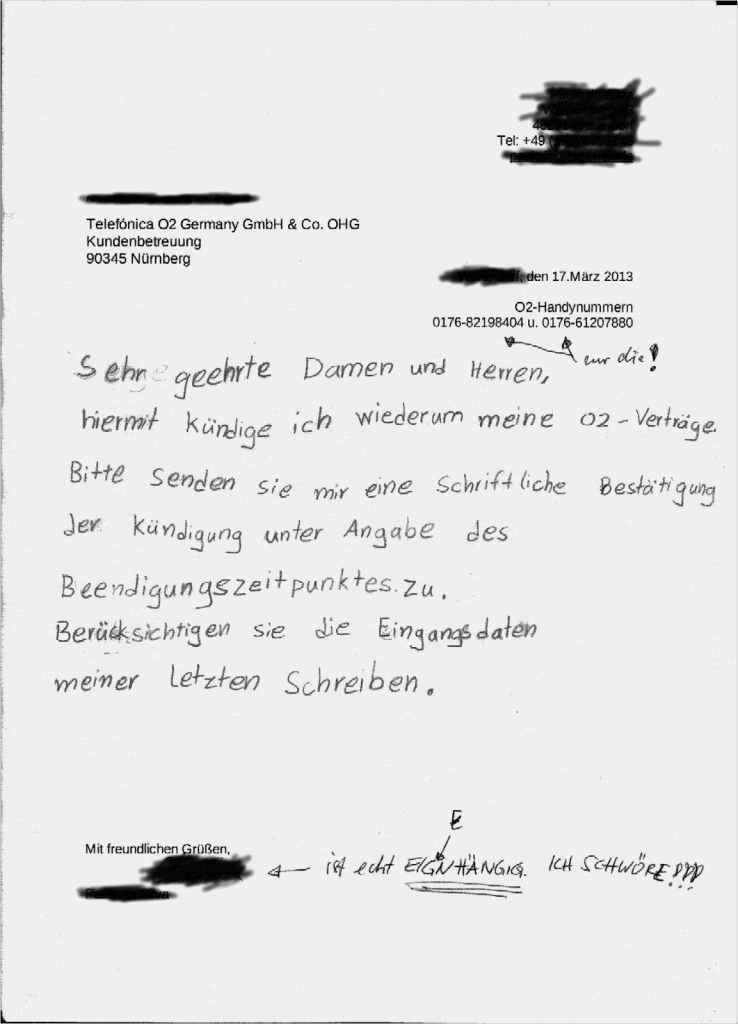 Tel: +49
Telefónica O2 Germany GmbH & Co. OHG
Kundenbetreuung
90345 Nürnberg
den 17.März 2013
O2-Handynummern
0176-82198404 u. 0176-61207880
nur die!
Sehr geehrte Damen und Herren,
hiermit kündige ich wiederum meine O2-Verträge.
Bitte senden sie mir eine Schriftliche Bestätigung
der Kündigung unter Angabe des
Beendigungszeitpunktes zu.
Berücksichtigen sie die Eingangsdaten
meiner letzten Schreiben.
E
Mit freundlichen Grüßen,
ist echt EIGNHÄNGIG. ICH SCHWÖRE!!!